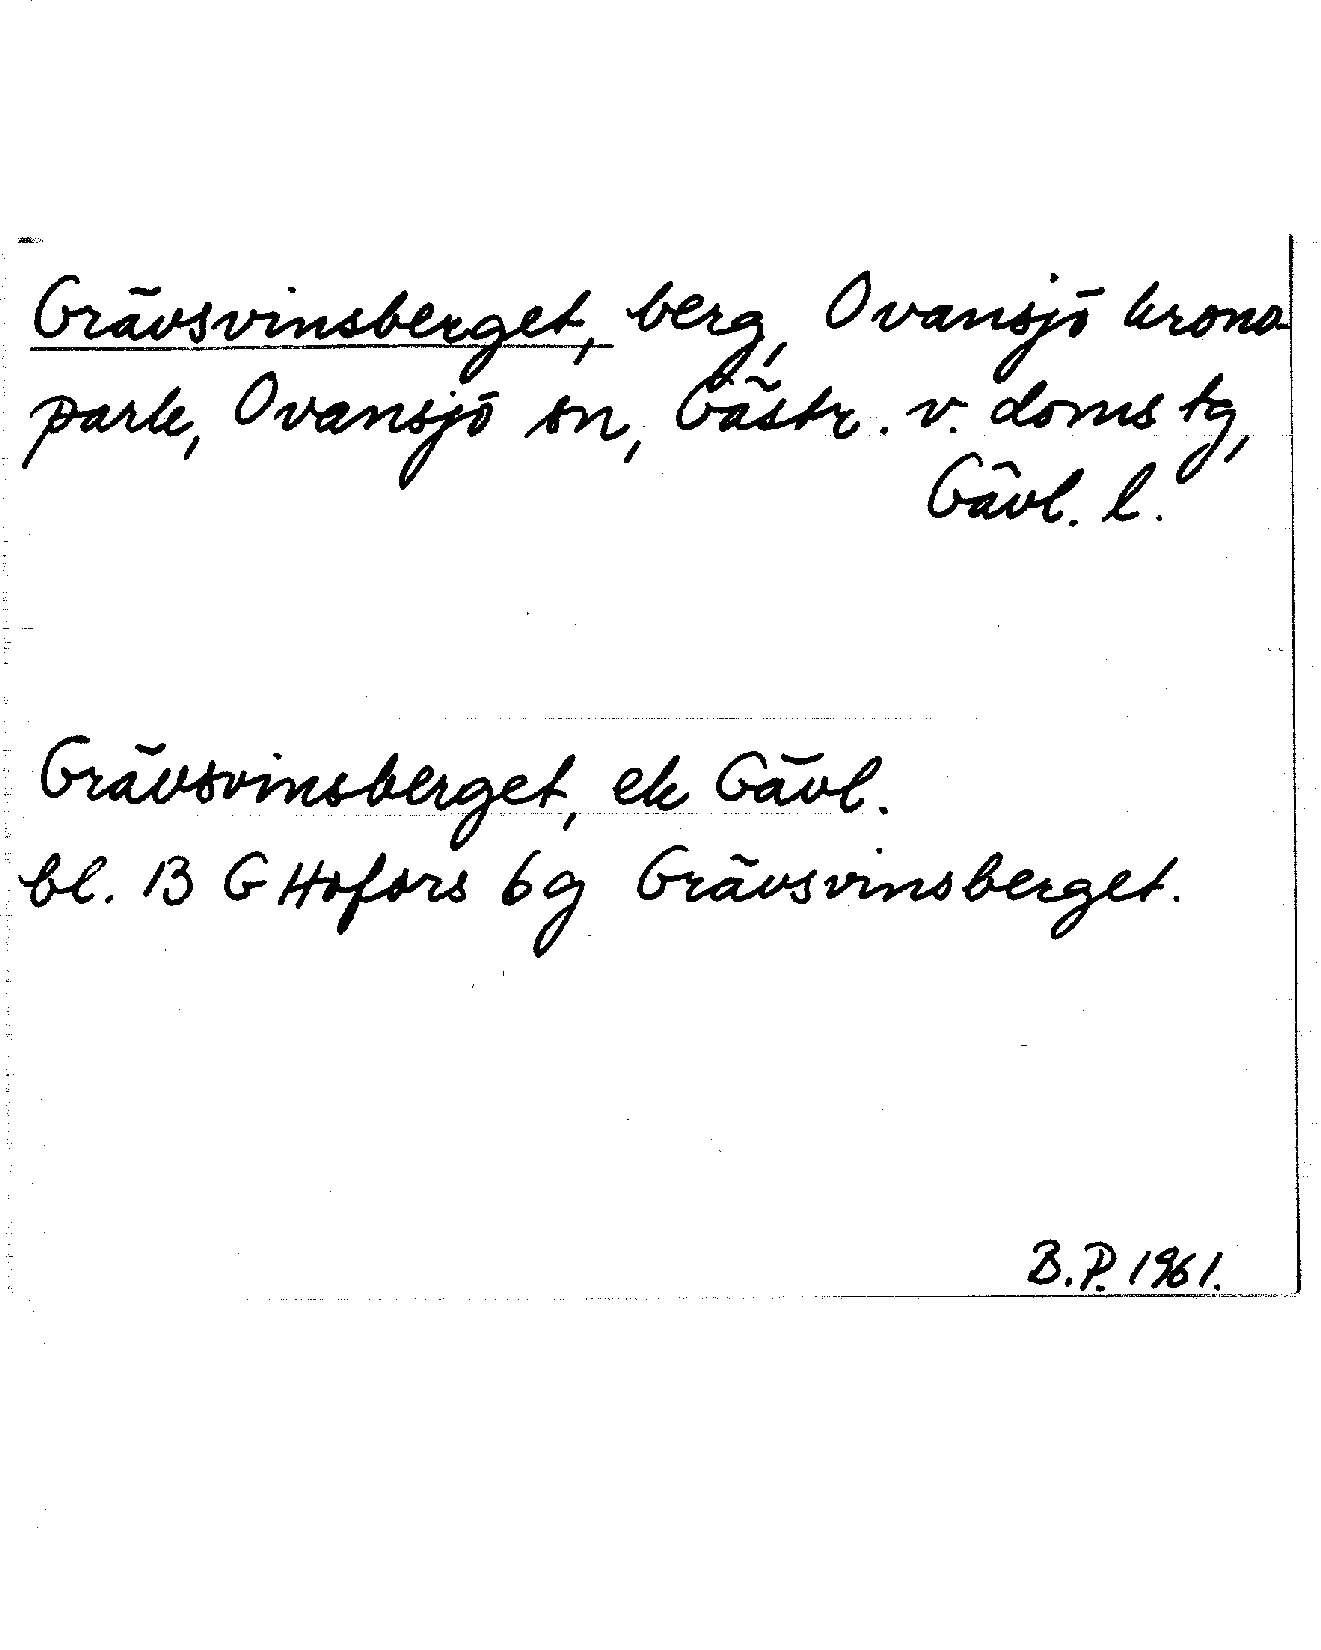 Grävsvinsberget, berg, Ovansjö krono-
park, Ovansjö sn, Gästr. v. doms tg,
Gävl. l.
Grävsvinsberget, ek Gävl.
bl. 13 G Hofors 6g Grävsvinsberget.
B.P. 1961.